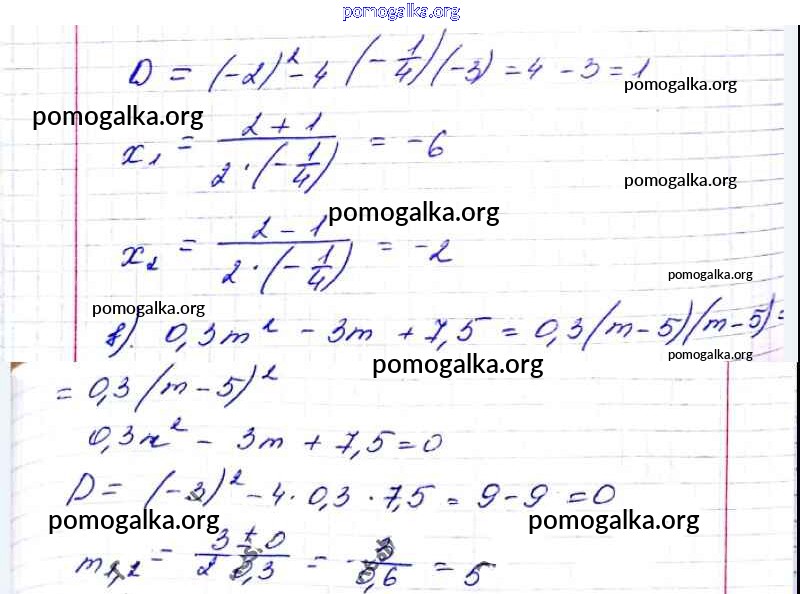 pomogalka.org
D = (-2)² - 4 (-1/4)(-3) = 4 - 3 = 1
pomogalka.org
pomogalka.org
x₁ = (2 + 1)/(2 · (-1/4)) = -6
pomogalka.org
pomogalka.org
x₂ = (2 - 1)/(2 · (-1/4)) = -2
pomogalka.org
pomogalka.org
в). 0,3m² - 3m + 7,5 = 0,3(m - 5)(m - 5) =
pomogalka.org
pomogalka.org
= 0,3(m - 5)²
0,3x² - 3m + 7,5 = 0
D = (-3)² - 4 · 0,3 · 7,5 = 9 - 9 = 0
pomogalka.org
pomogalka.org
m₁,₂ = (3 ± 0)/(2 · 0,3) = 3/0,6 = 5